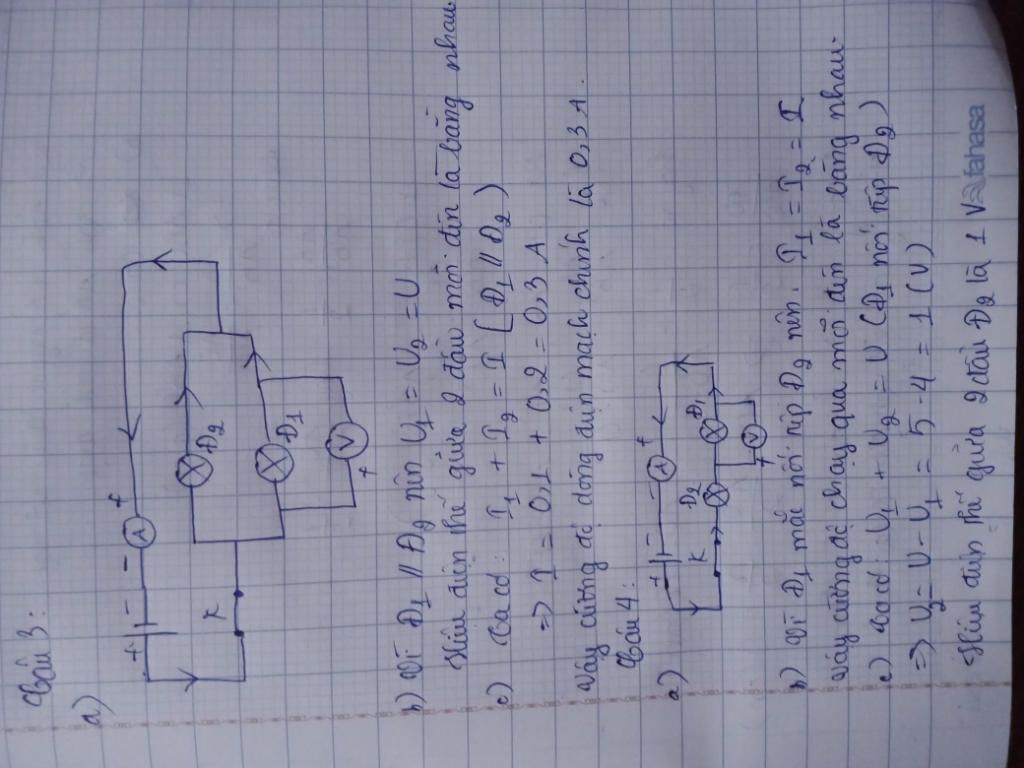 Câu 3:
a)
+ - A +
K
Đ2
Đ1
V
+
b) Vì Đ1 // Đ2 nên U1 = U2 = U
Hiệu điện thế giữa 2 đầu mỗi đèn là bằng nhau
c) Ta có: I1 + I2 = I [Đ1 // Đ2)
=> I = 0,1 + 0,2 = 0,3 A
Vậy cường độ dòng điện mạch chính là 0,3 A.
Câu 4:
a)
+ - A +
K
Đ2
Đ1
V
+
b) Vì Đ1 mắc nối tiếp Đ2 nên: I1 = I2 = I
Vậy cường độ chạy qua mỗi đèn là bằng nhau.
c) Ta có: U1 + U2 = U (Đ1 nối tiếp Đ2)
=> U2 = U - U1 = 5 - 4 = 1 (V)
Hiệu điện thế giữa 2 đầu Đ2 là 1 V
fahasa